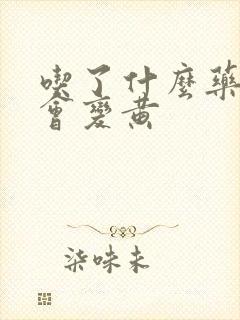 喫了什麼藥
會變黃
柒味未